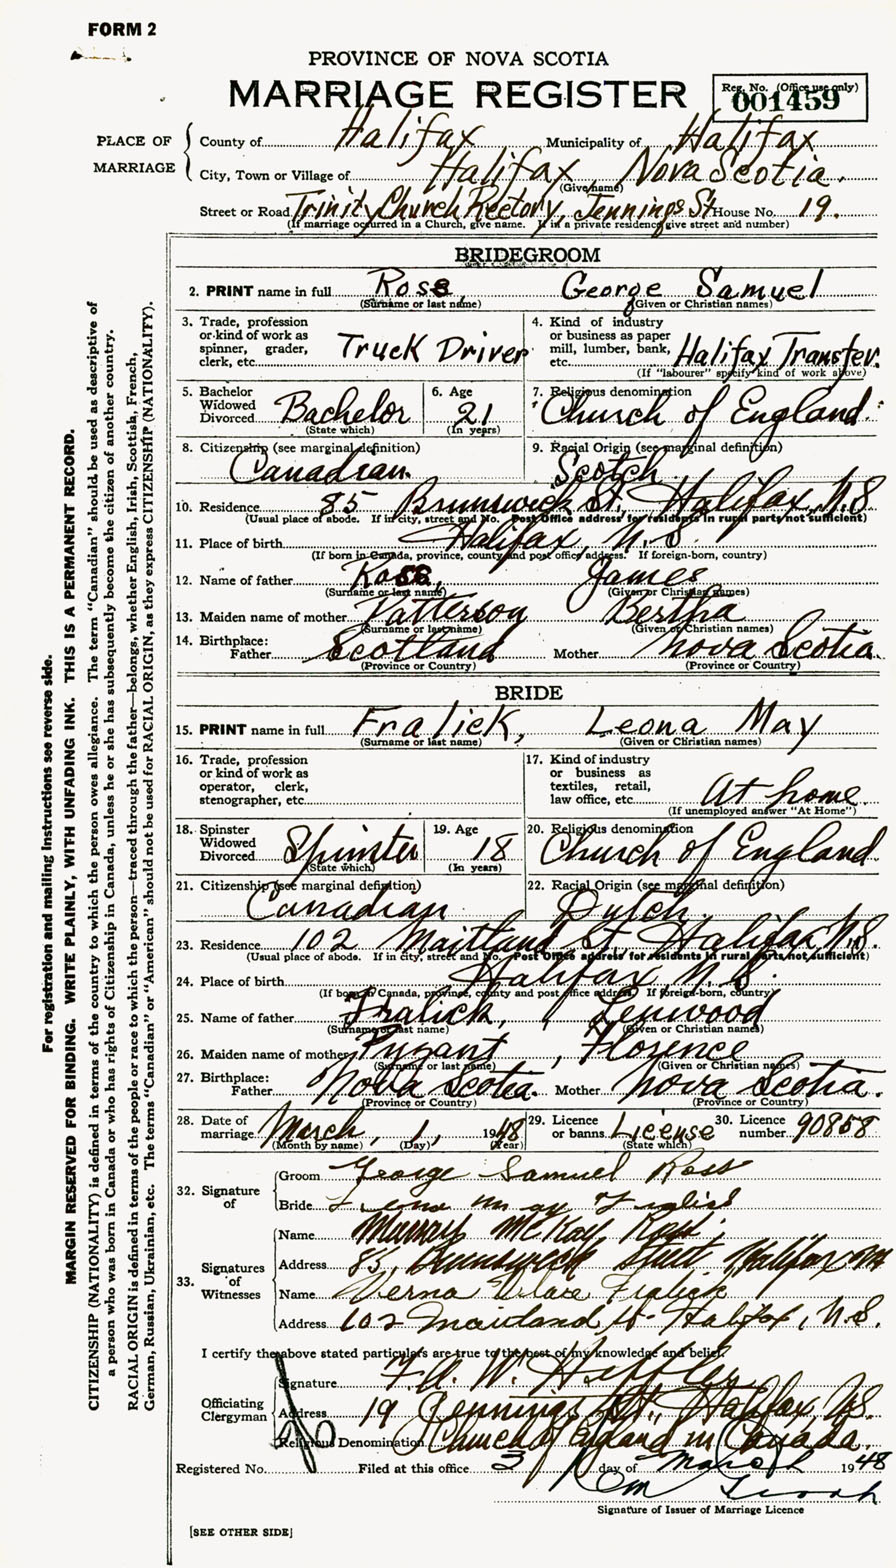 FORM 2
PROVINCE OF NOVA SCOTIA
MARRIAGE REGISTER
Reg. No. (Office use only)
001459
PLACE OF MARRIAGE
County of Halifax Municipality of Halifax
City, Town or Village of Halifax, Nova Scotia.
(Give name)
Street or Road Trinity Church Rectory, Jennings St House No. 19.
(If marriage occurred in a Church, give name. If in a private residence give street and number)
BRIDEGROOM
2. PRINT name in full Ross, George Samuel
(Surname or last name) (Given or Christian names)
3. Trade, profession or kind of work as spinner, grader, clerk, etc. Truck Driver
4. Kind of industry or business as paper mill, lumber, bank, etc. Halifax Transfer.
(If "labourer" specify kind of work above)
5. Bachelor Widowed Divorced Bachelor
(State which)
6. Age 21
(In years)
7. Religious denomination Church of England.
8. Citizenship (see marginal definition) Canadian
9. Racial Origin (see marginal definition) Scotch
10. Residence 85 Brunswick St., Halifax, N.S
(Usual place of abode. If in city, street and No. Post Office address for residents in rural parts not sufficient)
11. Place of birth Halifax, N.S.
(If born in Canada, province, county and post office address. If foreign-born, country)
12. Name of father Ross, James
(Surname or last name) (Given or Christian names)
13. Maiden name of mother Patterson Bertha
(Surname or last name) (Given or Christian names)
14. Birthplace:
Father Scotland Mother Nova Scotia.
(Province or Country) (Province or Country)
BRIDE
15. PRINT name in full Fralick, Leona May
(Surname or last name) (Given or Christian names)
16. Trade, profession or kind of work as operator, clerk, stenographer, etc.
17. Kind of industry or business as textiles, retail, law office, etc. At home.
(If unemployed answer "At Home")
18. Spinster Widowed Divorced Spinster
(State which)
19. Age 18
(In years)
20. Religious denomination Church of England.
21. Citizenship (see marginal definition) Canadian
22. Racial Origin (see marginal definition) Dutch
23. Residence 102 Maitland St, Halifax, N.S.
(Usual place of abode. If in city, street and No. Post Office address for residents in rural parts not sufficient)
24. Place of birth Halifax, N.S.
(If born in Canada, province, county and post office address. If foreign-born, country)
25. Name of father Fralick, Lenwood
(Surname or last name) (Given or Christian names)
26. Maiden name of mother Pyzant, Florence
(Surname or last name) (Given or Christian names)
27. Birthplace:
Father Nova Scotia. Mother Nova Scotia.
(Province or Country) (Province or Country)
28. Date of marriage March, 1, 1948
(Month by name) (Day) (Year)
29. Licence or banns License
(State which)
30. Licence number 90858
32. Signature of
Groom George Samuel Ross
Bride Leona May Fralick
33. Signatures of Witnesses
Name Murray McKay Ross
Address 85, Brunswick Street Halifax NS
Name Verna Fralick
Address 102 Maitland St- Halifax, N.S.
I certify the above stated particulars are true to the best of my knowledge and belief.
Officiating Clergyman
Signature F.A. W.
Address 19 Jennings St., Halifax N.S.
Religious Denomination Church of England in Canada.
Registered No. Filed at this office 3 day of March 1948
Signature of Issuer of Marriage Licence
[SEE OTHER SIDE]
For registration and mailing instructions see reverse side.
MARGIN RESERVED FOR BINDING. WRITE PLAINLY, WITH UNFADING INK. THIS IS A PERMANENT RECORD.
CITIZENSHIP (NATIONALITY) is defined in terms of the country to which the person owes allegiance. The term "Canadian" should be used as descriptive of
a person who was born in Canada or who has rights of Citizenship in Canada, unless he or she has subsequently become the citizen of another country.
RACIAL ORIGIN is defined in terms of the people or race to which the person—traced through the father—belongs, whether English, Irish, Scottish, French,
German, Russian, Ukrainian, etc. The terms "Canadian" or "American" should not be used for RACIAL ORIGIN, as they express CITIZENSHIP (NATIONALITY).